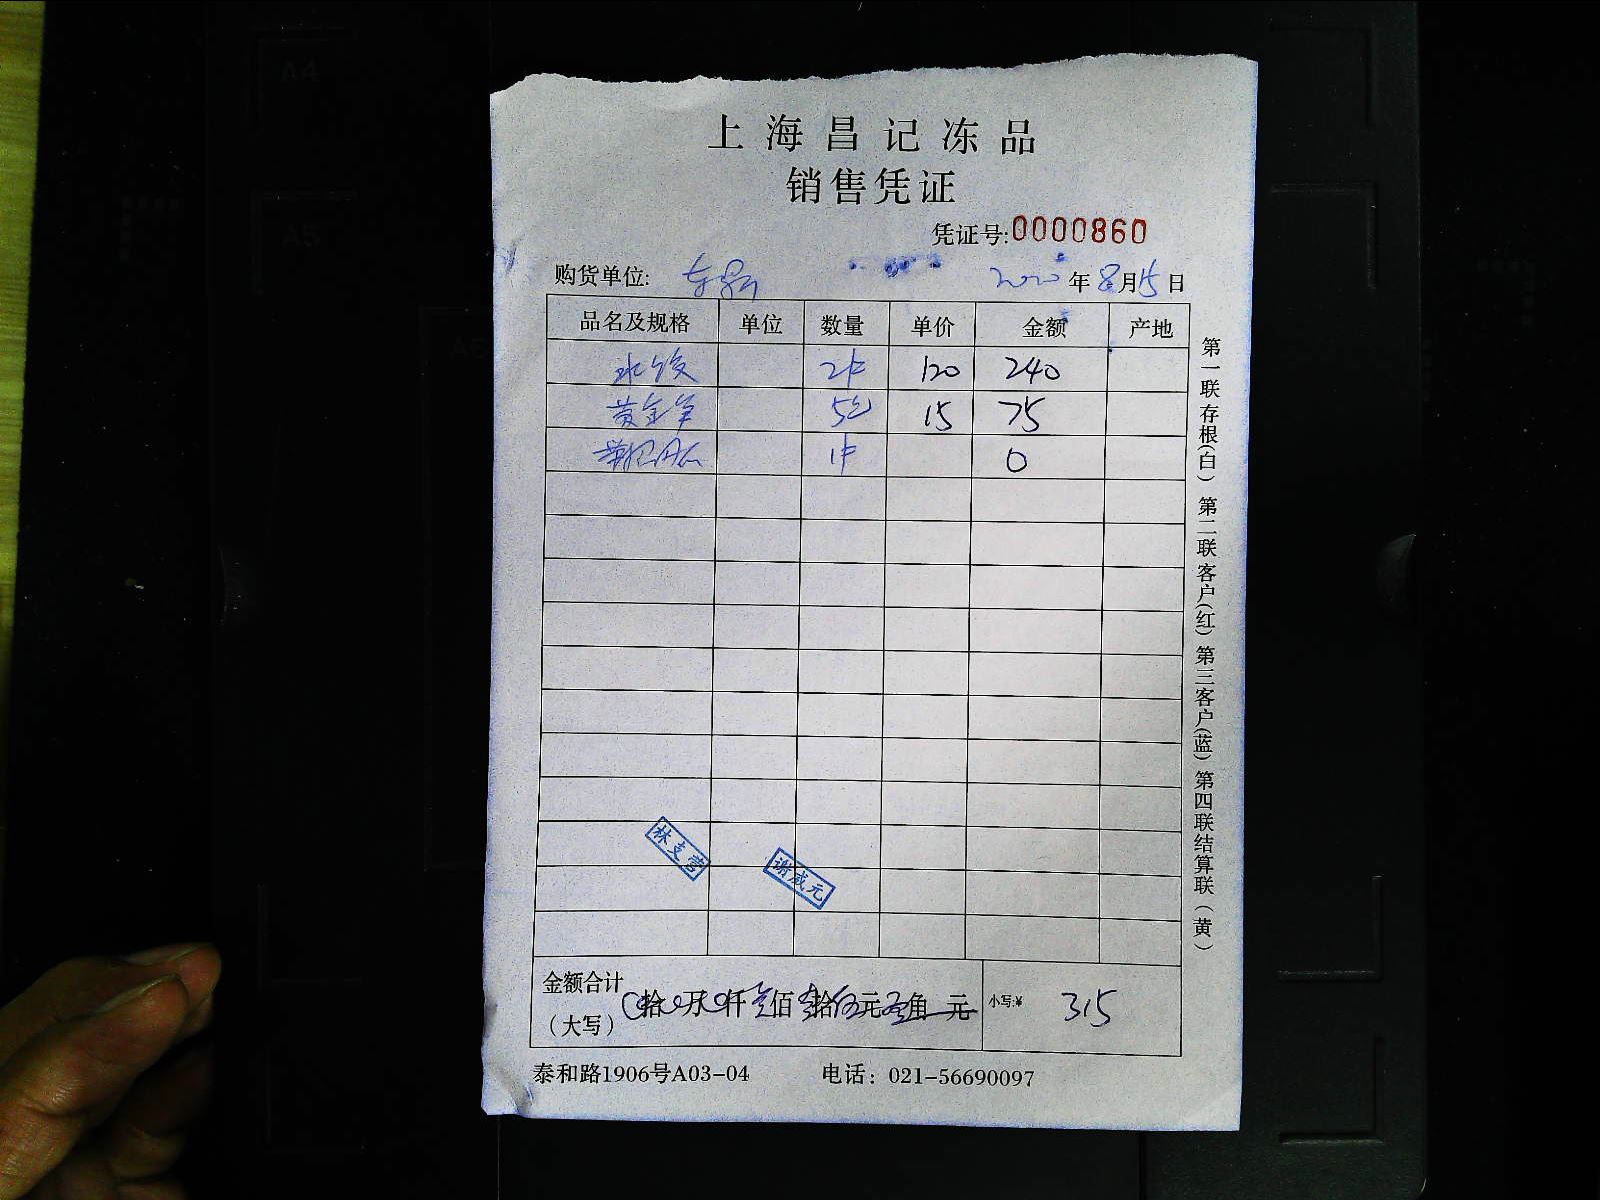 上海昌记冻品
销售凭证
凭证号:0000860
购货单位: 2020年8月15日
品名及规格 单位 数量 单价 金额 产地
水饺 2件 120 240
黄金羊 5包 15 75
1件 0
林支营
谢咸元
金额合计
(大写) 拾 万 仟 叁佰 壹拾伍元 角 元 小写:¥ 315
泰和路1906号A03-04 电话：021-56690097
第一联存根(白) 第二联客户(红) 第三客户(蓝) 第四联结算联(黄)
A4
A5